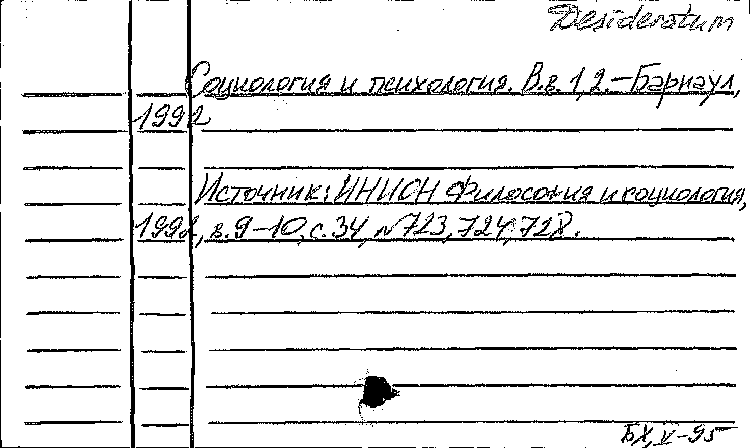 Desideratum
Социология и психология. В.в. 1,2.–Барнаул,
1992
Источник: ИНИОН Философия и социология,
1992, в. 9–10, с. 34, №723, 724, 728.
БХ, V-95